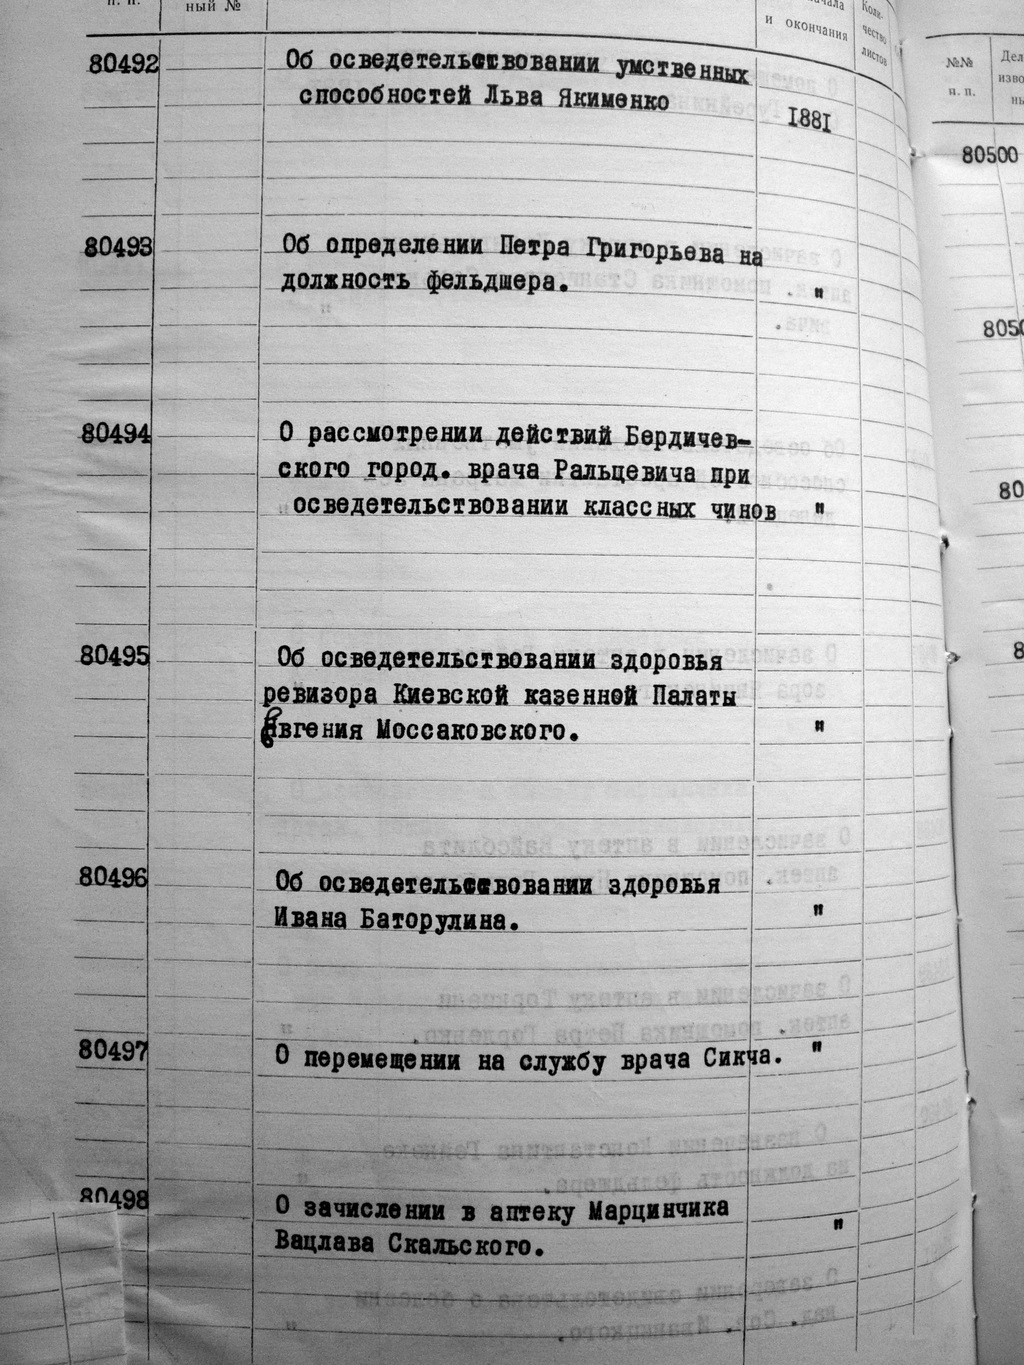 п. п.
ный №
начала
и окончания
Коли-
чество
листов
80492
Об осведетельствовании умственных
способностей Льва Якименко
1881
80493
Об определении Петра Григорьева на
должность фельдшера.
"
80494
О рассмотрении действий Бердичев-
ского город. врача Ральцевича при
осведетельствовании классных чинов "
80495
Об осведетельствовании здоровья
ревизора Киевской казенной Палаты
Евгения Моссаковского. "
80496
Об осведетельствовании здоровья
Ивана Баторулина. "
80497
О перемещении на службу врача Сикча. "
80498
О зачислении в аптеку Марцинчика
Вацлава Скальского. "
№№
п. п.
80500